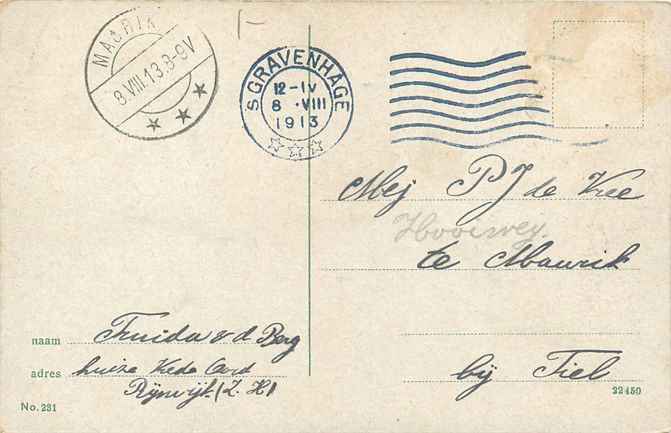 MAURIK
8.VIII.13.8-9V
S GRAVENHAGE
12-IV
8 .VIII
1913
Mej P J de Vree
Hooiweg.
te Maurik
bij Tiel
naam Truida v d Berg
adres huize Vrede Oord
Rijswijk (Z. H)
No. 231
22450